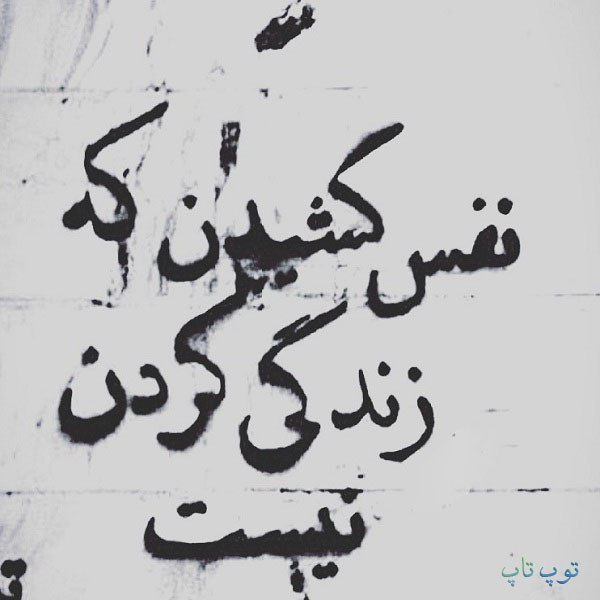 نفس کشیدن که
زندگی کردن
نیست
توپ تاپ